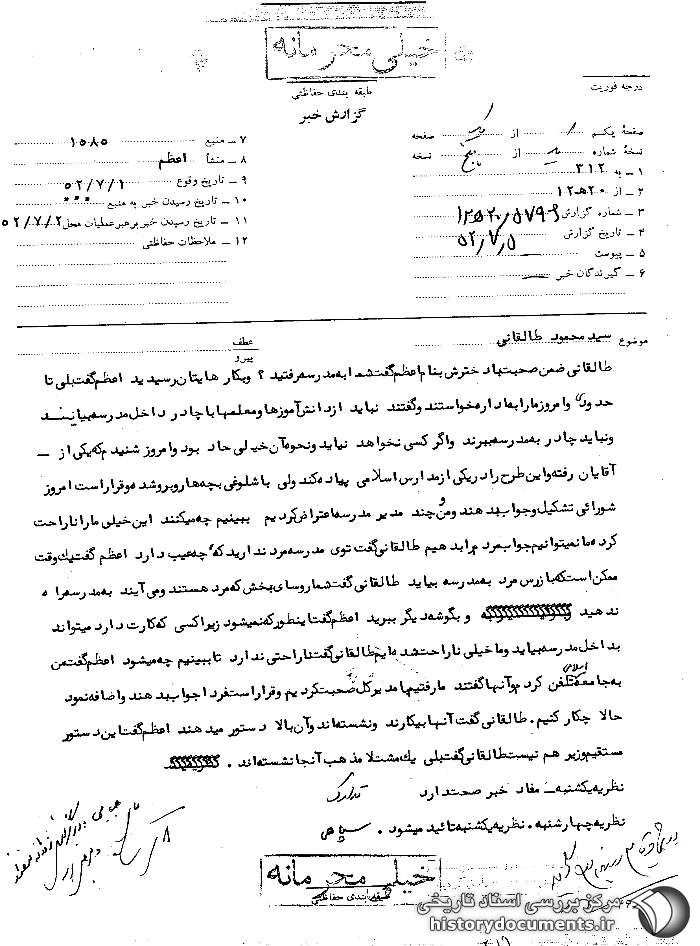 خیلی محرمانه
طبقه بندی حفاظتی
گزارش خبر
درجه فوریت
صفحهٔ یکم از صفحه
نسخهٔ شماره از پنج نسخه
۱ – به ۳۱۲
۲ – از ۲۰ هـ ۱۲
۳ – شماره گزارش
۴ – تاریخ گزارش ۵۲/۷/۵
۵ – پیوست
۶ – گیرندگان خبر
۷ – منبع ۱۵۸۵
۸ – منشأ اعظم
۹ – تاریخ وقوع ۵۲/۷/۱
۱۰ – تاریخ رسیدن خبر به منبع
۱۱ – تاریخ رسیدن خبر برهبر عملیات محل ۵۲/۷/۲
۱۲ – ملاحظات حفاظتی
موضوع سید محمود طالقانی
عطف
پیرو
طالقانی ضمن صحبت با دخترش بنام اعظم گفت شما به مدرسه رفتید ؟ و بکارهایتان رسیدید اعظم گفت بلی تا
حدودی و امروز ما را به اداره خواستند و گفتند نباید از دانش آموزها و معلمها با چادر داخل مدرسه بیایند
و نباید چادر به مدرسه ببرند و اگر کسی نخواهد نیاید و نحوه آن خیلی حاد بود و امروز شنیدم که یکی از –
آقایان رفته و این طرح را در یکی از مدارس اسلامی پیاده کند ولی با شلوغی بچه ها روبرو شده و قرار است امروز
شورائی تشکیل و جواب بدهند و من و چند مدیر مدرسه اعتراض کردیم ببینیم چه میکنند این خیلی ما را ناراحت
کرده ما نمیتوانیم جواب مردم را بدهیم طالقانی گفت توی مدرسه مرد ندارید که چه عیب دارد اعظم گفت یک وقت
ممکن است که بازرس مرد به مدرسه بیاید طالقانی گفت شما روسای بخش که مرد هستند و می آیند به مدرسه راه
ندهید و بگوشه دیگر ببرید اعظم گفت اینطور که نمیشود زیرا کسی که کارت دارد میتواند
بداخل مدرسه بیاید و ما خیلی ناراحت شده ایم طالقانی گفت ناراحتی ندارد تا ببینیم چه میشود اعظم گفت من
به جامعه اسلامی تلفن کردم و آنها گفتند ما رفتیم با مدیر کل صحبت کردیم و قرار است فردا جواب بدهند و اضافه نمود
حالا چکار کنیم. طالقانی گفت آنها بیکارند و نشسته اند و آن بالا دستور میدهند اعظم گفت این دستور
مستقیم وزیر هم نیست طالقانی گفت بلی یک مشت لا مذهب آنجا نشسته اند .
نظریه یکشنبه – مفاد خبر صحت دارد
نظریه چهارشنبه . نظریه یکشنبه تائید میشود . سپاهی
خیلی محرمانه
طبقه بندی حفاظتی
مرکز بررسی اسناد تاریخی
historydocuments.ir